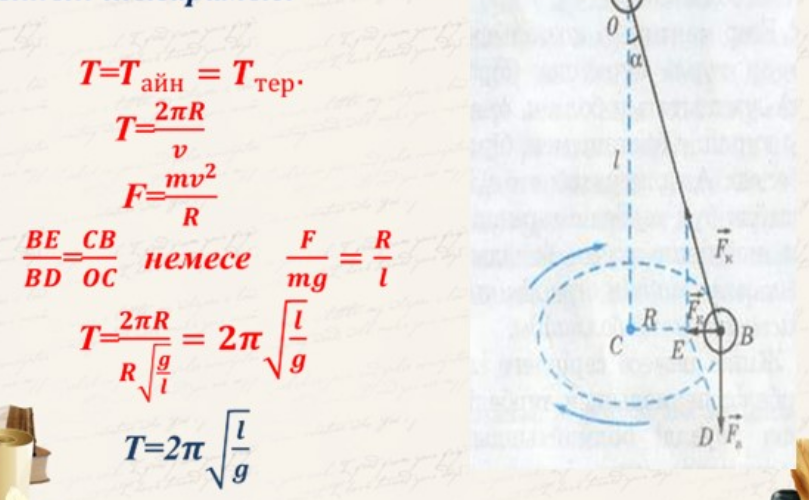 T=Tайн = Tтер.
T=2πR/v
F=mv²/R
BE/BD=CB/OC немесе F/mg=R/l
T=2πR/R√(g/l) = 2π√(l/g)
T=2π√(l/g)
O
α
l
C
R
E
B
D